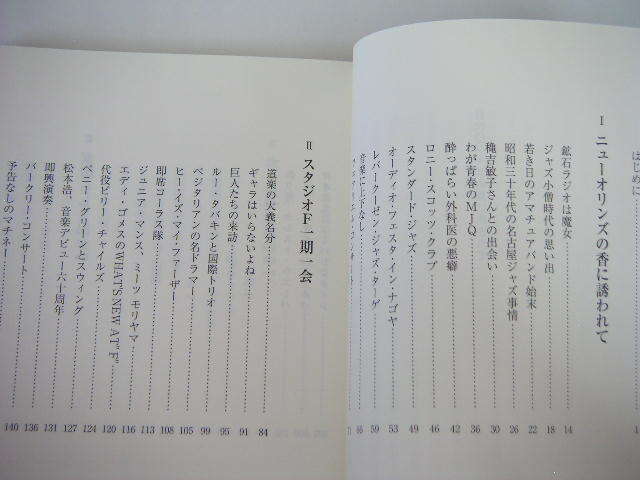 はじめ
I ニューオリンズの香に誘われて
鉱石ラジオは魔女 14
ジャズ小僧時代の思い出 18
若き日のアマチュアバンド始末 22
昭和三十年代の名古屋ジャズ事情 26
穐吉敏子さんとの出会い 30
わが青春のMJQ 36
酔っぱらい外科医の悪癖 42
ロニー・スコッツ・クラブ 46
スタンダード・ジャズ 49
オーディオ・フェスタ・イン・ナゴヤ 53
レバークーゼン・ジャズ・ターゲ 59
音楽に上下なし 66
II スタジオF一期一会
道楽の大義名分 84
ギャラはいらないよね 91
巨人たちの来訪 95
ルー・タバキンと国際トリオ 99
ベジタリアンの名ドラマー 105
ヒー・イズ・マイ・ファーザー 108
即席コーラス隊 113
ジュニア・マンス、ミーツ モリヤマ 116
エディ・ゴメスのWHAT'S NEW AT "F" 120
代役ビリー・チャイルズ 124
ベニー・グリーンとスウィング 127
松本浩、音楽デビュー六十周年 131
即興演奏 136
バークリー・コンサート 140
予告なしのマチネー